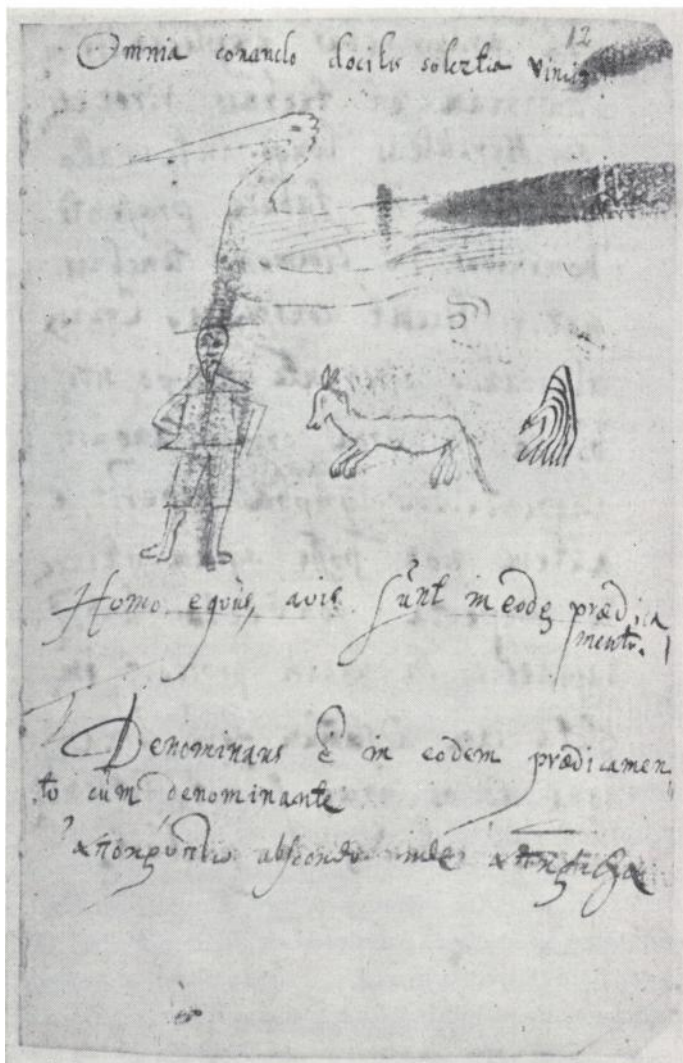 12
Omnia conando docilis solertia vincit
Homo equus, avis sunt in eodē prædica
mento.
Denominans ē in eodem prædicamen
to cum denominante
ἀποκρύπτω abscondo inde